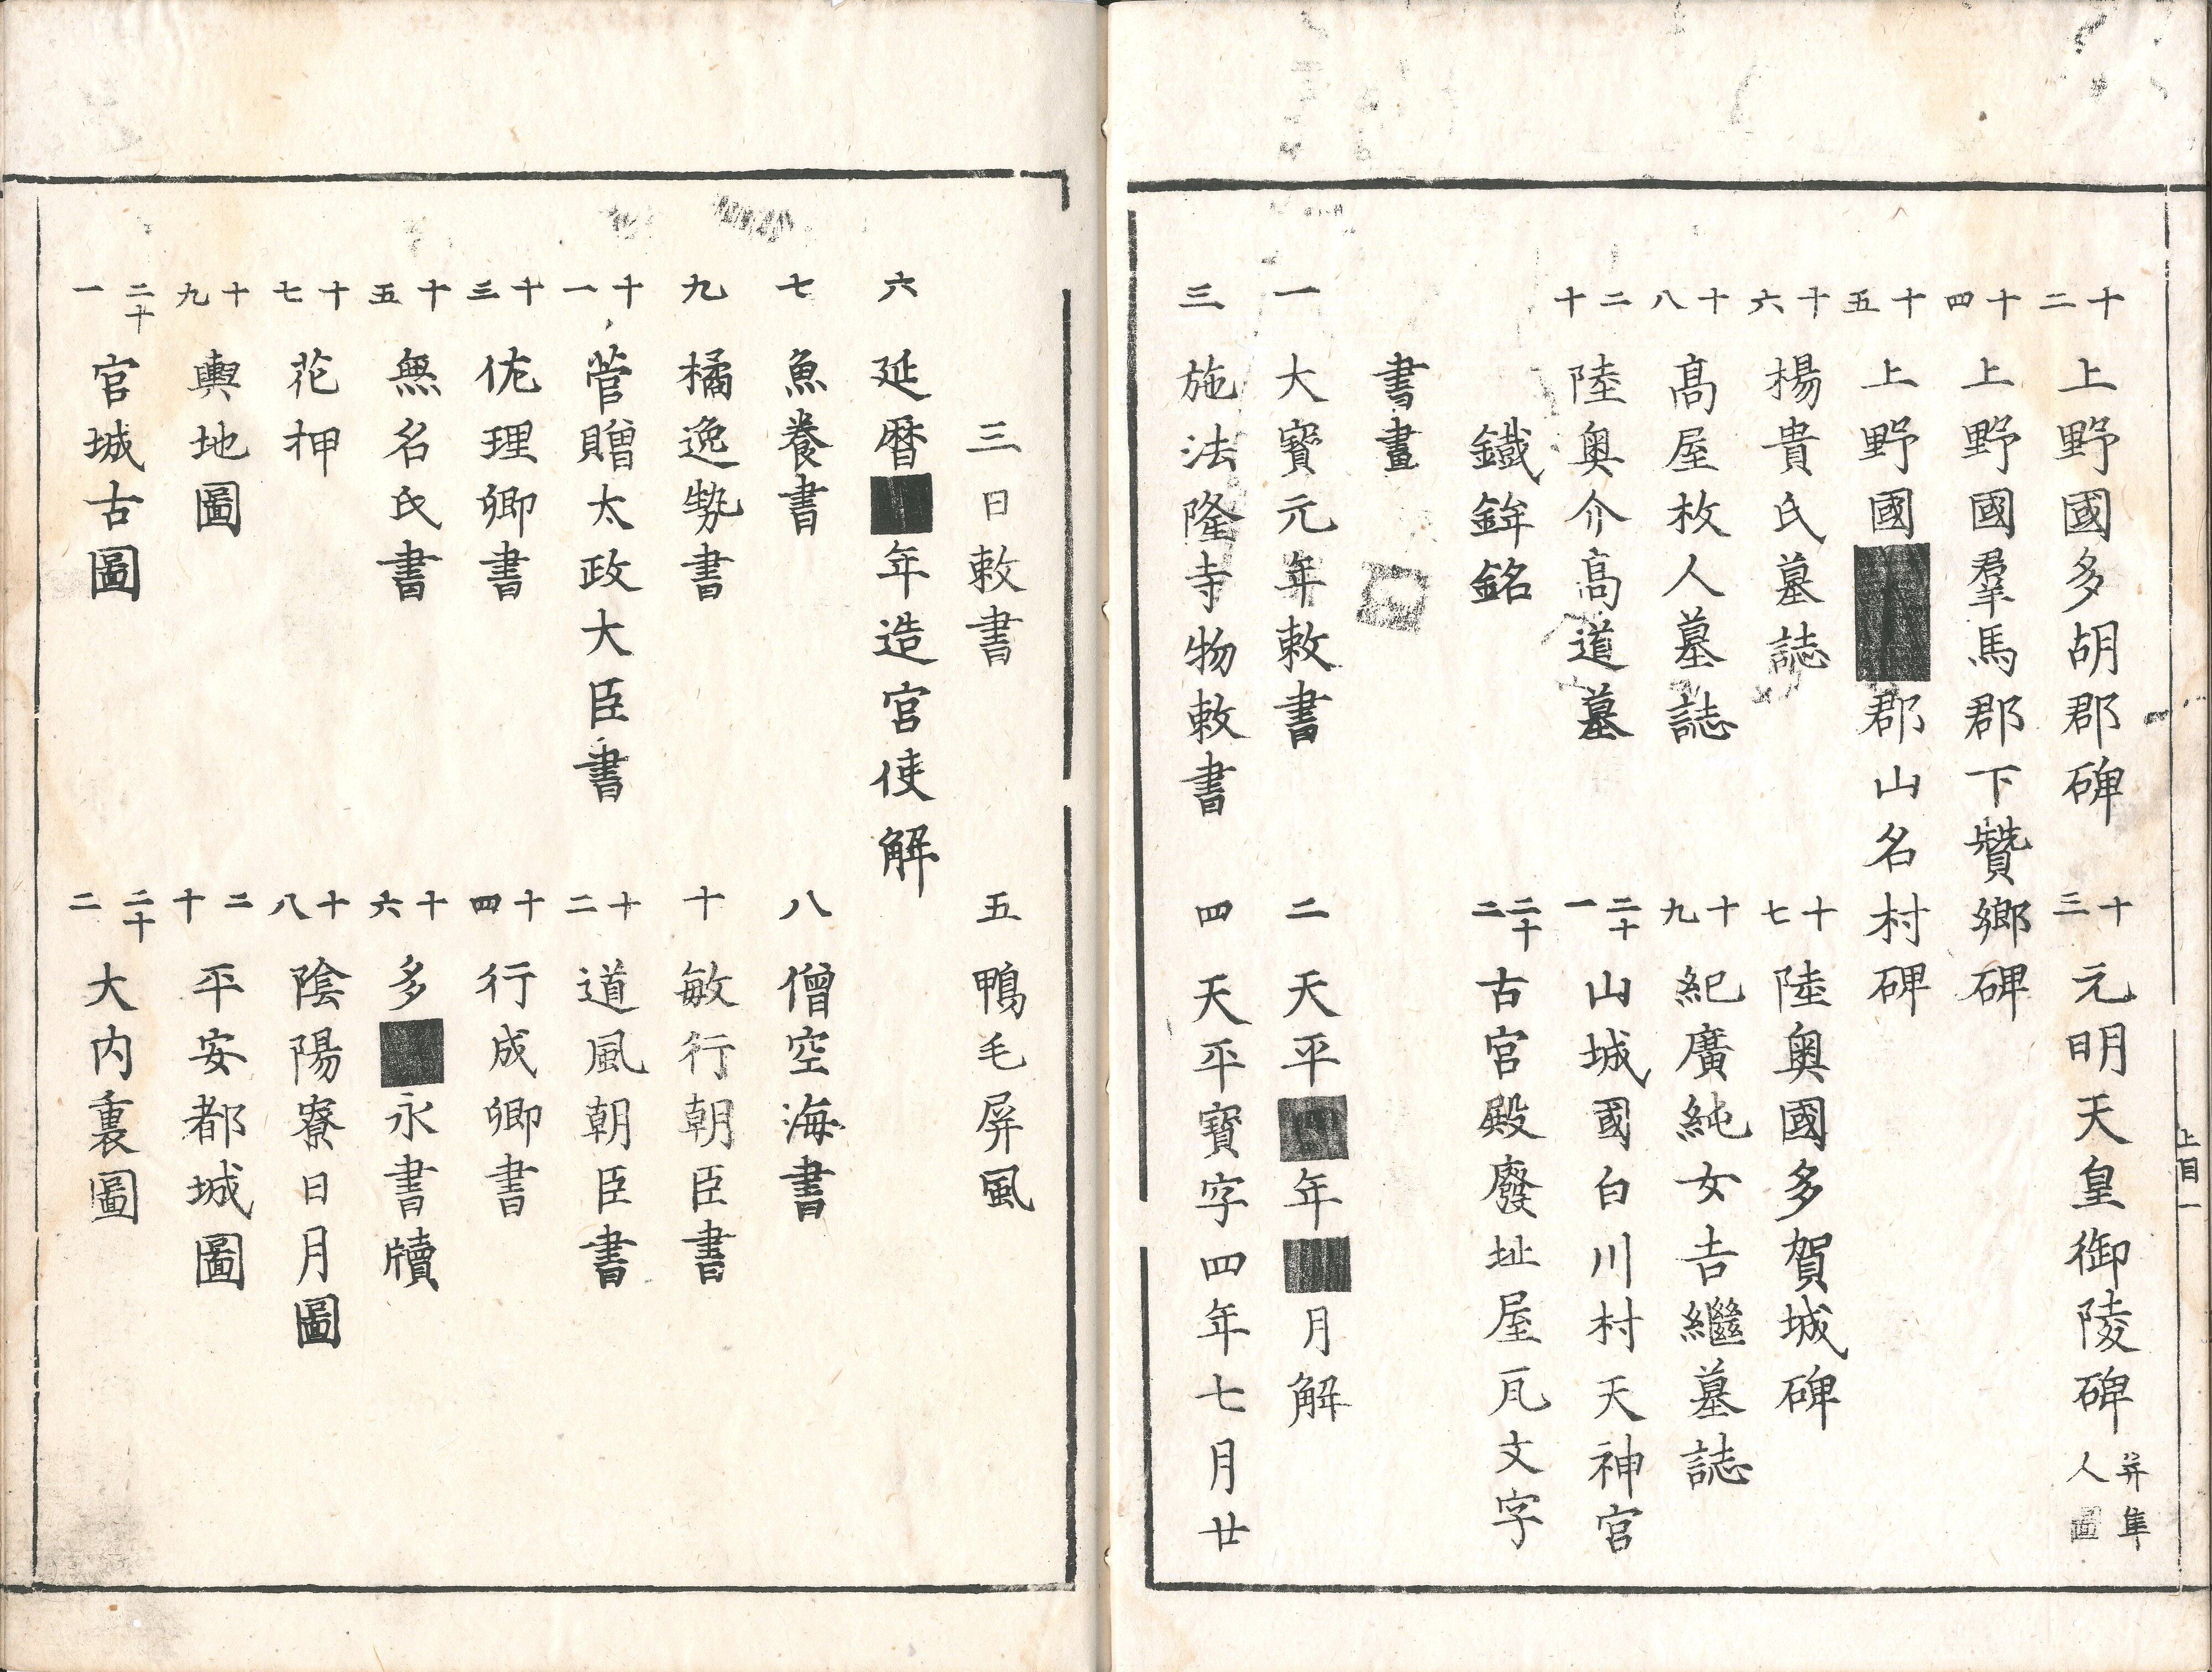 十二 上野國多胡郡碑 十三 元明天皇御陵碑 并隼人圖
十四 上野國羣馬郡下贊鄉碑
十五 上野國 郡山名村碑
十六 楊貴氏墓誌 十七 陸奧國多賀城碑
十八 髙屋枚人墓誌 十九 紀廣純女吉繼墓誌
二十 陸奧介髙道墓 二十一 山城國白川村天神宮
鐵鉾銘 二十二 古宮殿廢址屋瓦文字
書畫
一 大寶元年敕書 二 天平 年 月解
三 施法隆寺物敕書 四 天平寶字四年七月廿
上目一
三日敕書 五 鴨毛屏風
六 延暦 年造宮使解
七 魚養書 八 僧空海書
九 橘逸勢書 十 敏行朝臣書
十一 菅贈太政大臣書 十二 道風朝臣書
十三 佐理卿書 十四 行成卿書
十五 無名氏書 十六 多 永書牘
十七 花押 十八 陰陽寮日月圖
十九 輿地圖 二十 平安都城圖
二十一 宮城古圖 二十二 大内裏圖